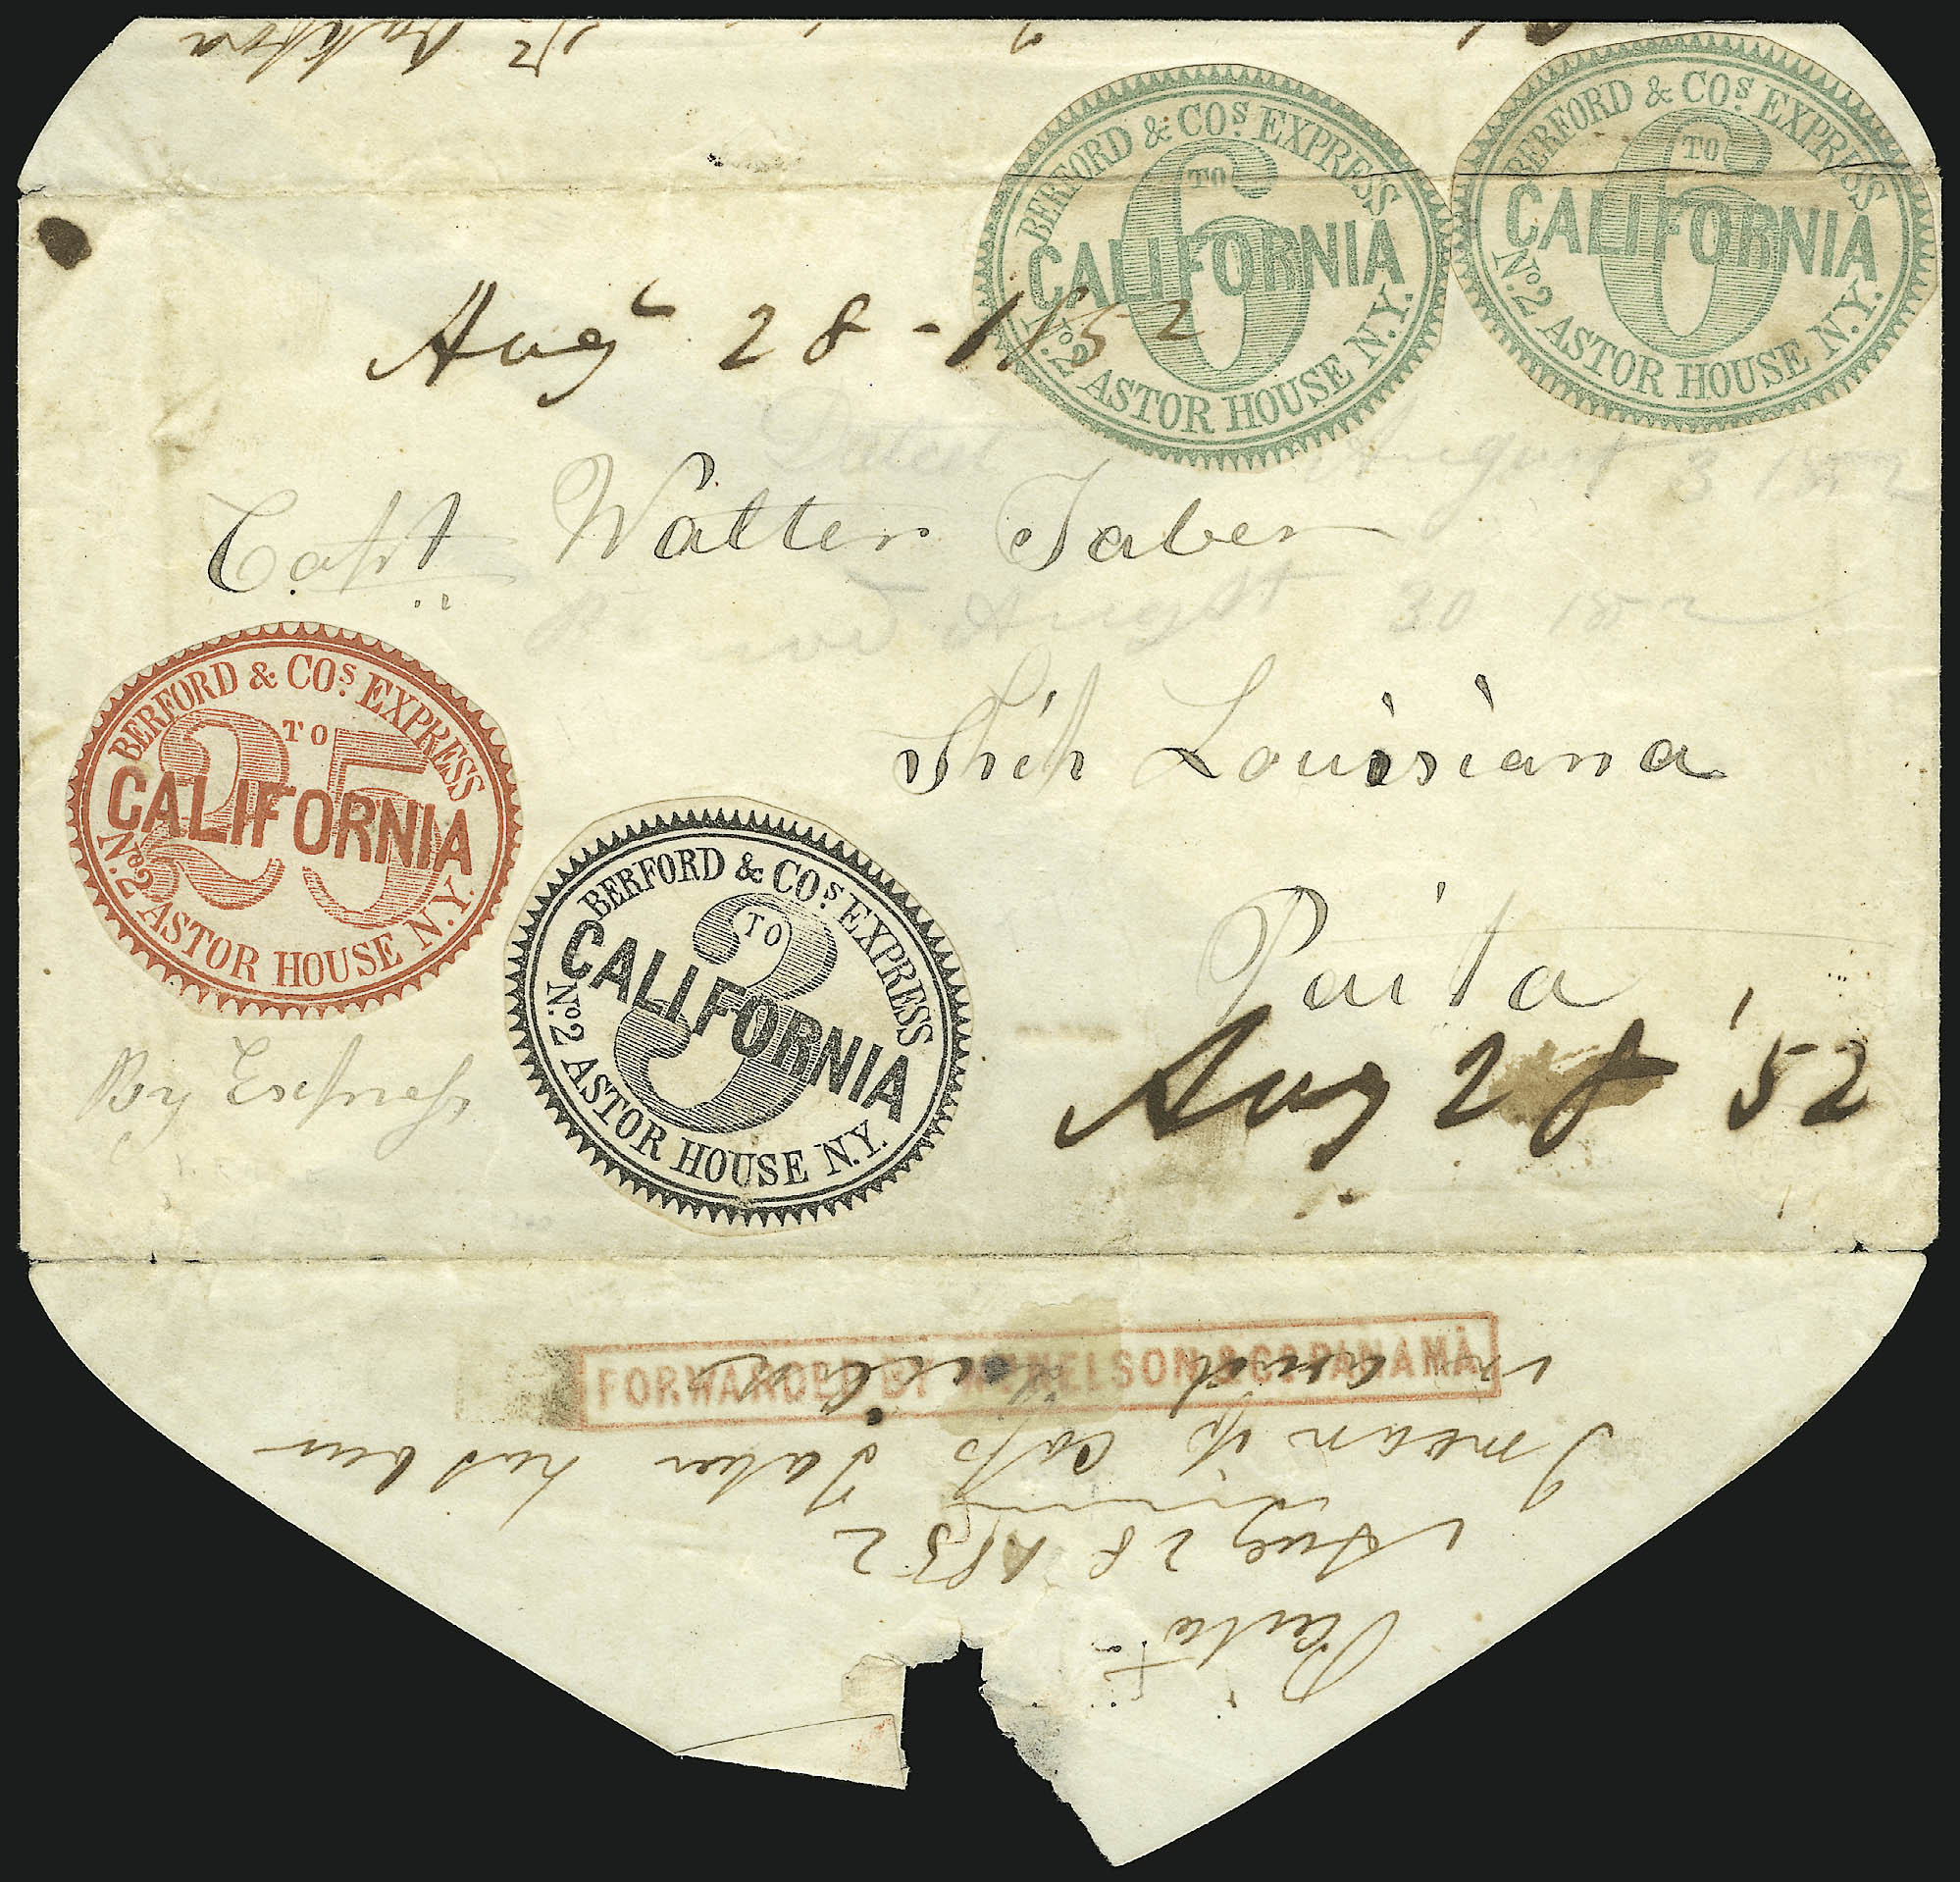 BERFORD & COS. EXPRESS
6
TO
CALIFORNIA
No. 2 ASTOR HOUSE N.Y.
BERFORD & COS. EXPRESS
6
TO
CALIFORNIA
No. 2 ASTOR HOUSE N.Y.
Augt 28 - 1852
Dated August 3 1852
Capt Walter Taber
Augst 30 1852
Ship Louisiana
BERFORD & COS. EXPRESS
25
TO
CALIFORNIA
No. 2 ASTOR HOUSE N.Y.
BERFORD & COS. EXPRESS
3
TO
CALIFORNIA
No. 2 ASTOR HOUSE N.Y.
Paita
By Express
Aug 28 '52
FORWARDED BY WM NELSON & CO PANAMA
Paita
Aug 28 1852
I mean if Capt Taber has been
in and